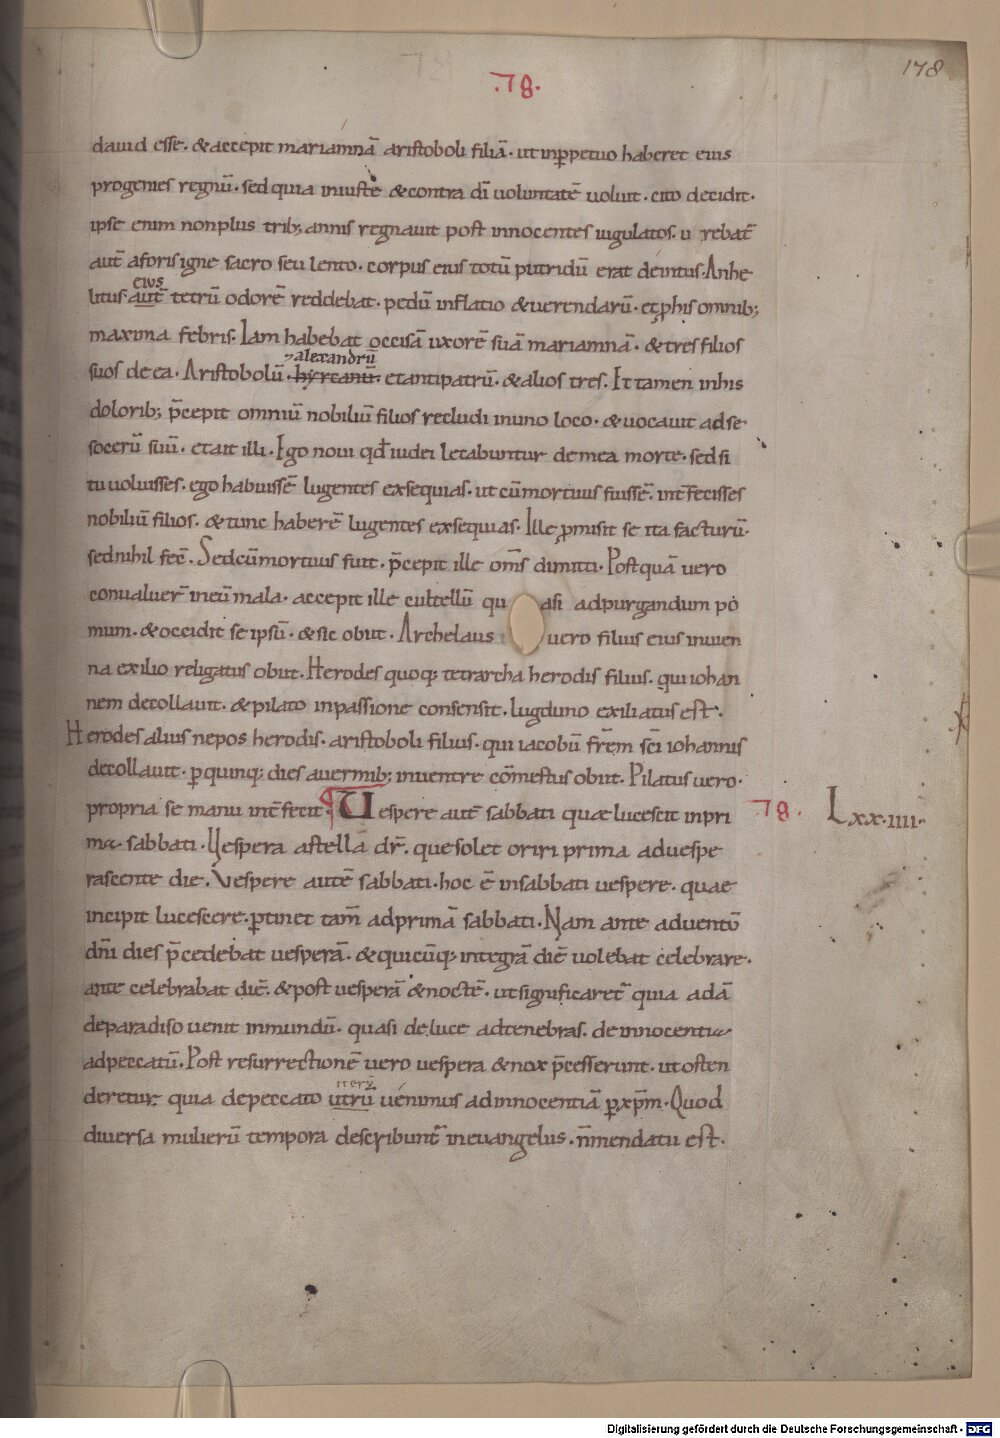 178
.78.
dauid esse. & accepit mariamnā aristoboli filiā. ut inp̄petuo haberet eius
progenies regnū. sed quia iniuste & contra dī uoluntatē uoluit. cito decidit.
ipse enim nonplus trib; annis regnauit post innocentes iugulatos. u rebat᷑
aut̄ aforis igne sacro seu lento. corpus eius totū putridū erat deintus. Anhe
eius
litus aut̄ tetrū odorē reddebat. pedū inflatio & uerendarū. et p̄ his omnib;
maxima febris. Iam habebat occisā uxorē suā mariamnā. & tres filios
alexandrū
suos de ea. Aristobolū. hyrcanū. et antipatrū. & alios tres. Et tamen inhis
dolorib; p̄cepit omniū nobiliū filios recludi inuno loco. & uocauit adse
socerū suū. et ait illi. Ego noui qd̄ iudei letabuntur demea morte. sed si
tu uoluisses. ego habuissē lugentes exsequias. ut cū mortuus fuissē. int̄fecisses
nobiliū filios. & tunc haberē lugentes exsequias. Ille p̄misit se ita facturū.
sed nihil fec̄. Sed cū mortuus fuit. p̄cepit ille om̄s dimitti. Postquā uero
conualuer̄ ineū mala. accepit ille cultellū qu asi adpurgandum po
mum. & occidit se ipsū. & sic obiit. Archelaus uero filius eius inuien
na exilio religatus obiit. Herodes quoq; tetrarcha herodis filius. qui iohan
nem decollauit. & pilato inpassione consensit. lugduno exiliatus est.
Herodes alius nepos herodis. aristoboli filius. qui iacobū fr̄em sc̄i iohannis
decollauit. p̄ quinq; dies auermib; inuentre com̄estus obiit. Pilatus uero.
propria se manu int̄fecit. Uespere aut̄ sabbati quae lucescit inpri
78. Lxx.IIII.
ma sabbati. Uespera astella dr̄. que solet oriri prima aduespe
rascente die. Vespere autē sabbati. hoc ē insabbati uespere. quae
incipit lucescere. p̄tinet tam̄ adprimā sabbati. Nam ante aduentū
dn̄i dies p̄cedebat uesperā. & quicūq; integrā diē uolebat celebrare.
ante celebrabat diē. & post uesperā & noctē. ut significaret᷑ quia adā
deparadiso uenit inmundū. quasi deluce adtenebras. de innocentia
adpeccatū. Post resurrectionē uero uespera & nox p̄cesserunt. ut osten
iterū
deretur quia depeccato utrū uenimus ad innocentiā p̄ xp̄m. Quod
diuersa mulierū tempora describunt᷑ ineuangeliis. n̄ mendatii est.
Digitalisierung gefördert durch die Deutsche Forschungsgemeinschaft - DFG